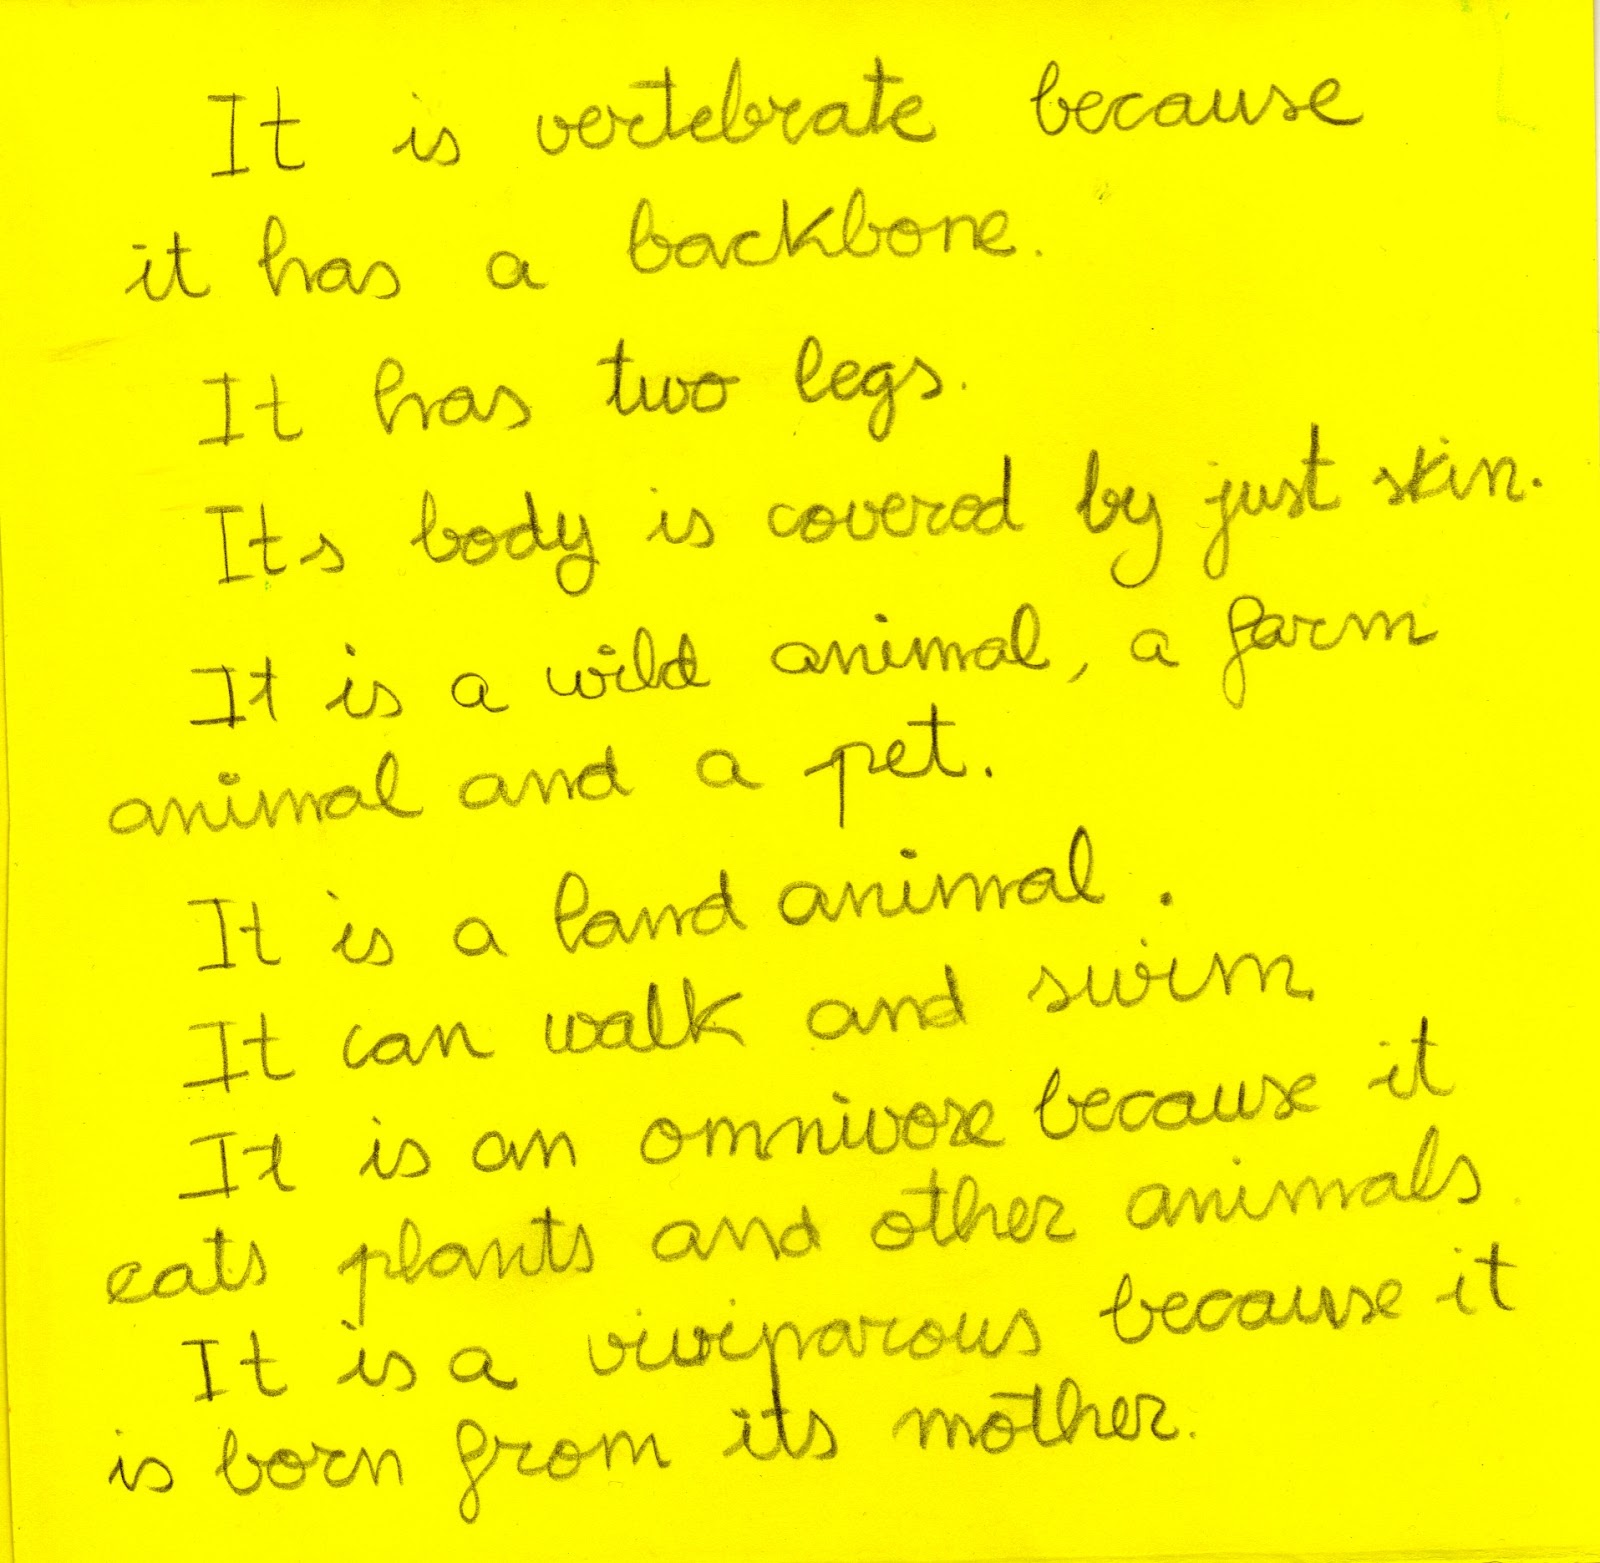 It is vertebrate because
it has a backbone.
It has two legs.
Its body is covered by just skin.
It is a wild animal, a farm
animal and a pet.
It is a land animal.
It can walk and swim.
It is an omnivore because it
eats plants and other animals
It is a viviparous because it
is born from its mother.